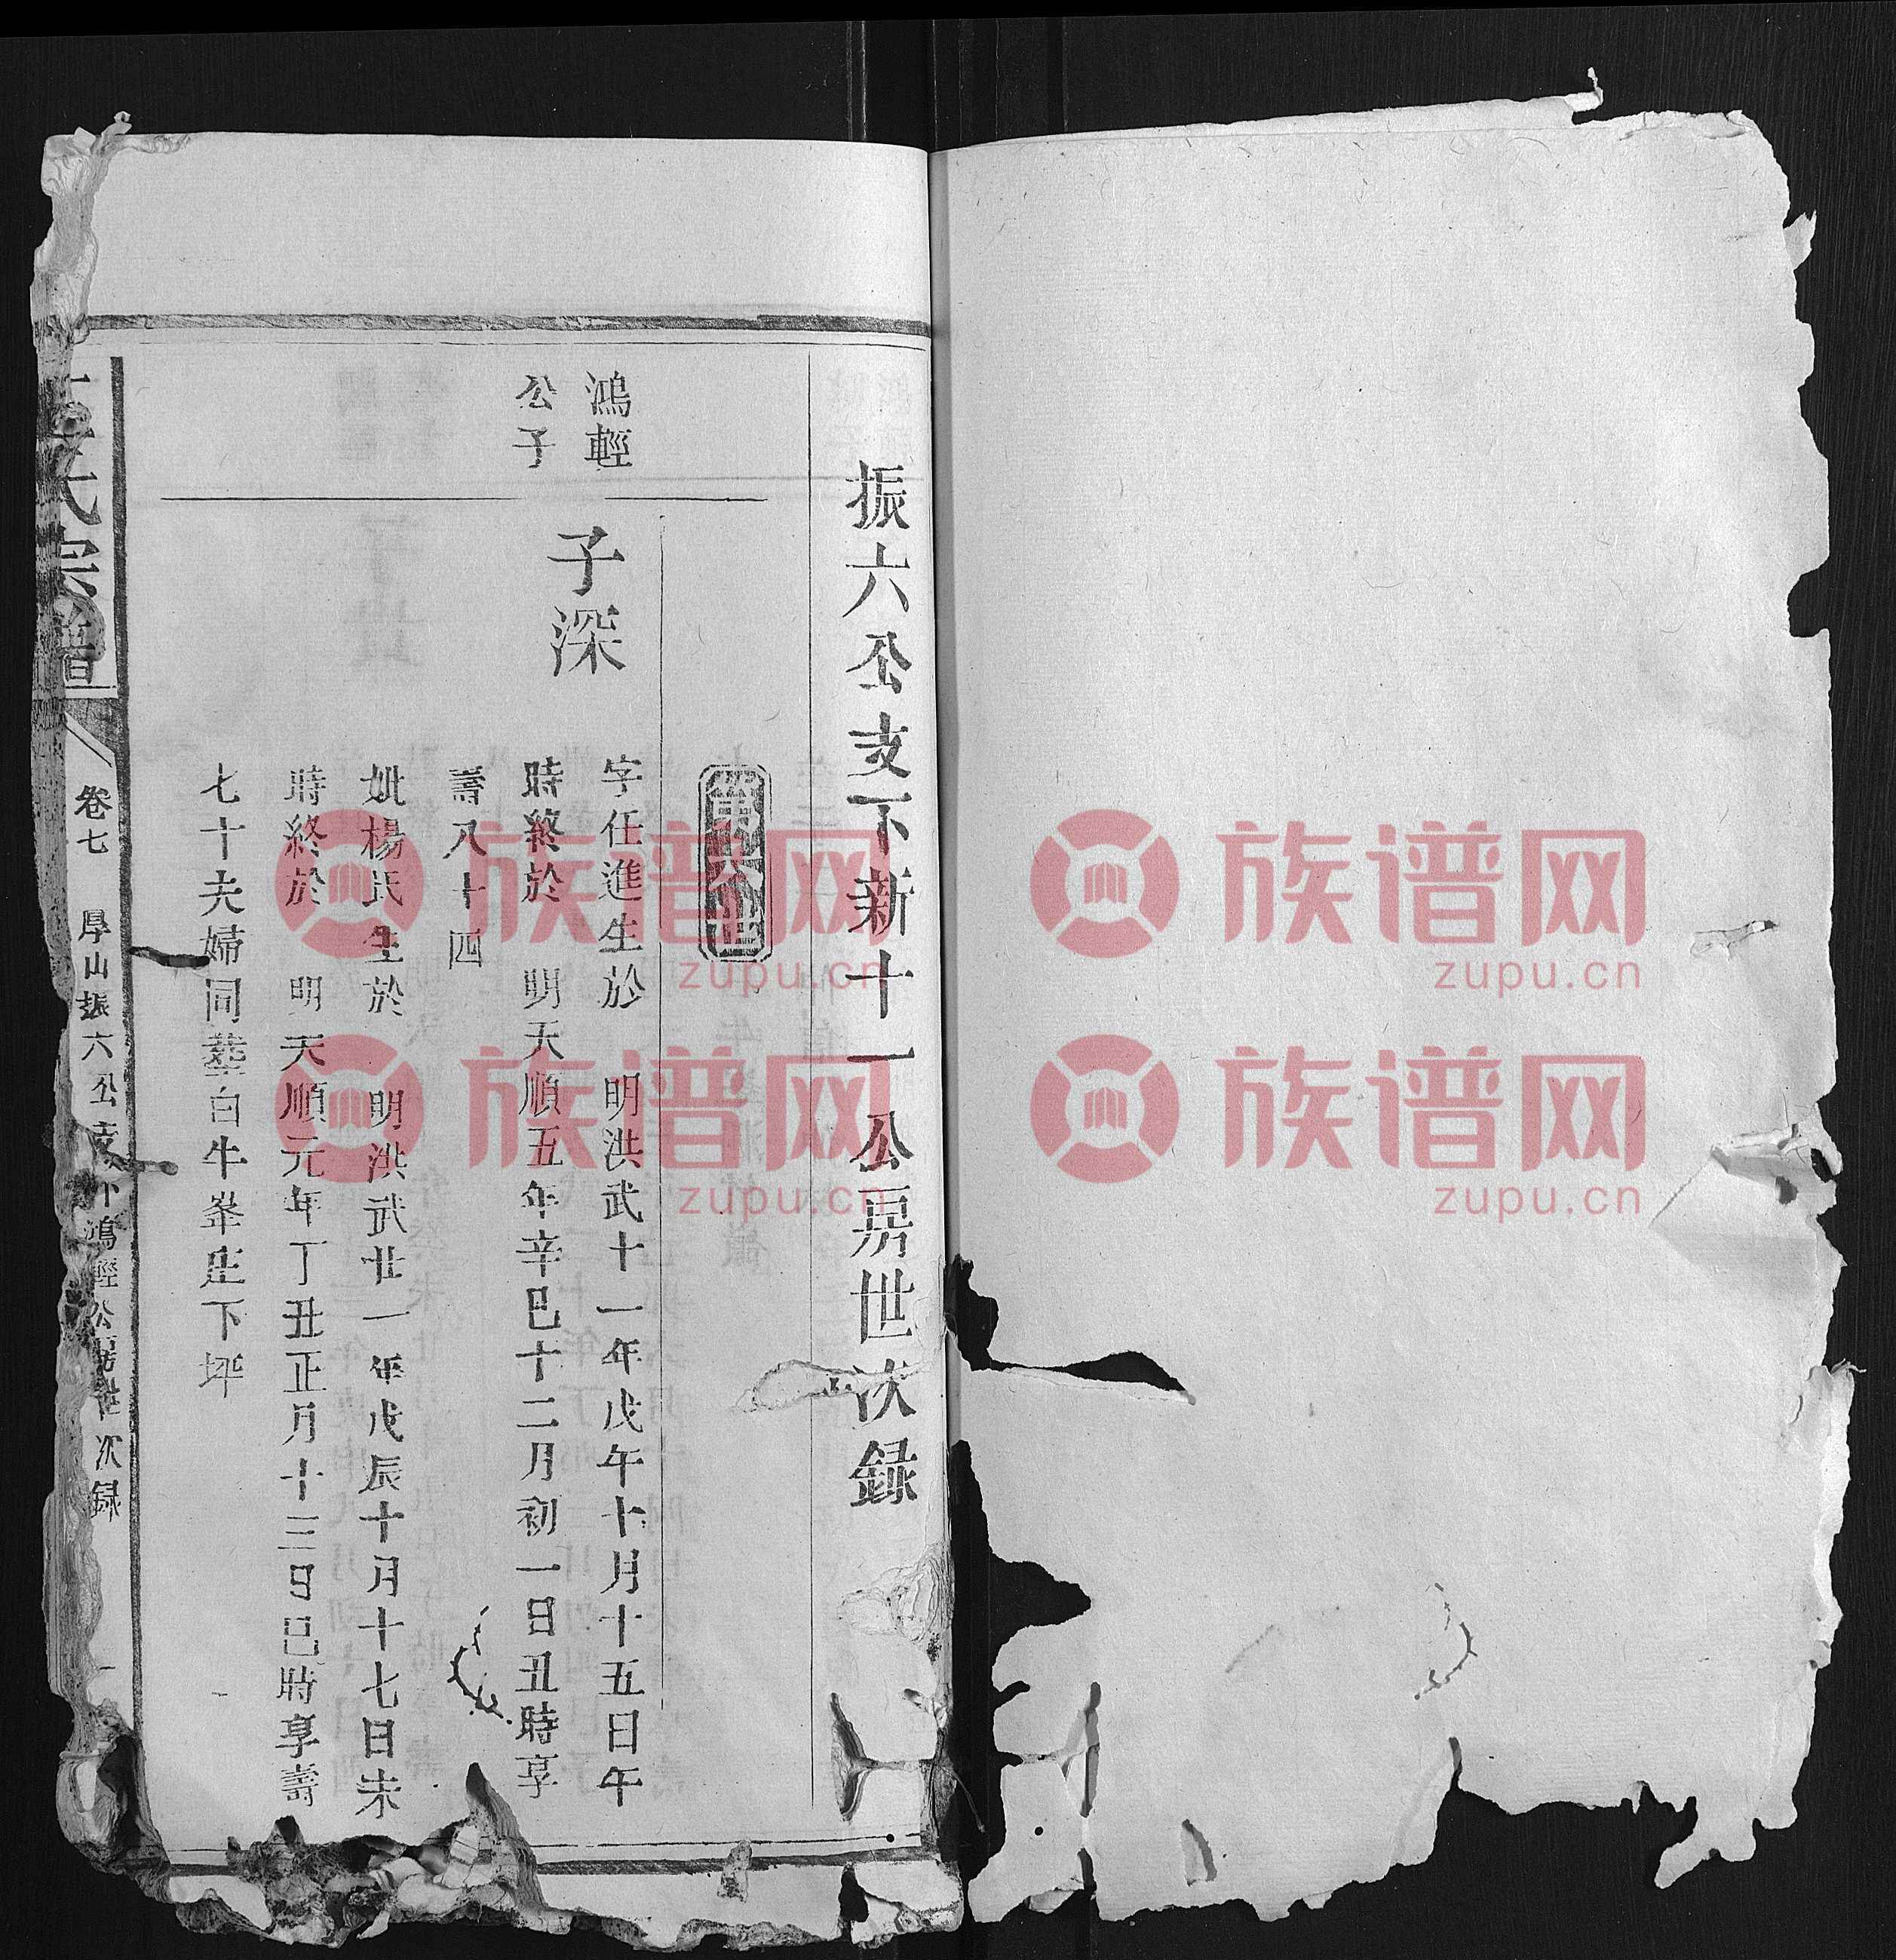 振六公支下新十一公房世次録
第六世
鴻輕
公子
子深
字任進生於 明洪武十一年戊午十月十五日午
時終於 明天順五年辛巳十二月初一日丑時享
壽八十四
妣楊氏生於 明洪武廿一年戊辰十月十七日未
時終於 明天順元年丁丑正月十三日巳時享壽
七十夫婦同墓白牛峯庄下坪
氏宗譜
卷七 厚山振六公支下鴻輕公房世次録 一
族谱网
zupu.cn
族谱网
zupu.cn
族谱网
zupu.cn
族谱网
zupu.cn